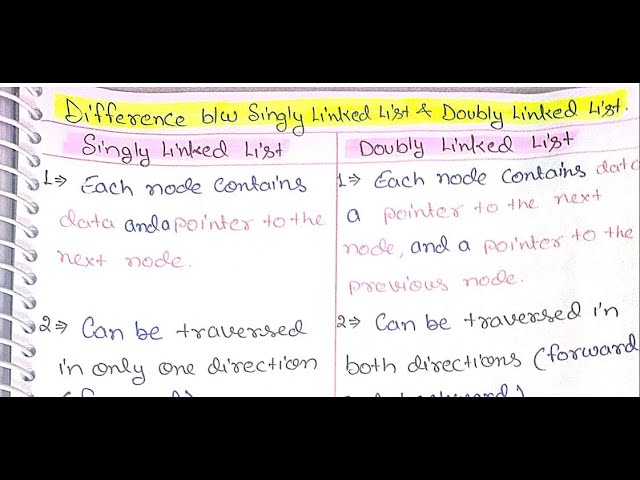 Difference b/w Singly Linked List & Doubly Linked List.
Singly Linked List
1⇒ Each node contains
data and a pointer to the
next node.
2⇒ Can be traversed
in only one direction
Doubly Linked List
1⇒ Each node contains data
a pointer to the next
node, and a pointer to the
previous node.
2⇒ Can be traversed in
both directions (forward